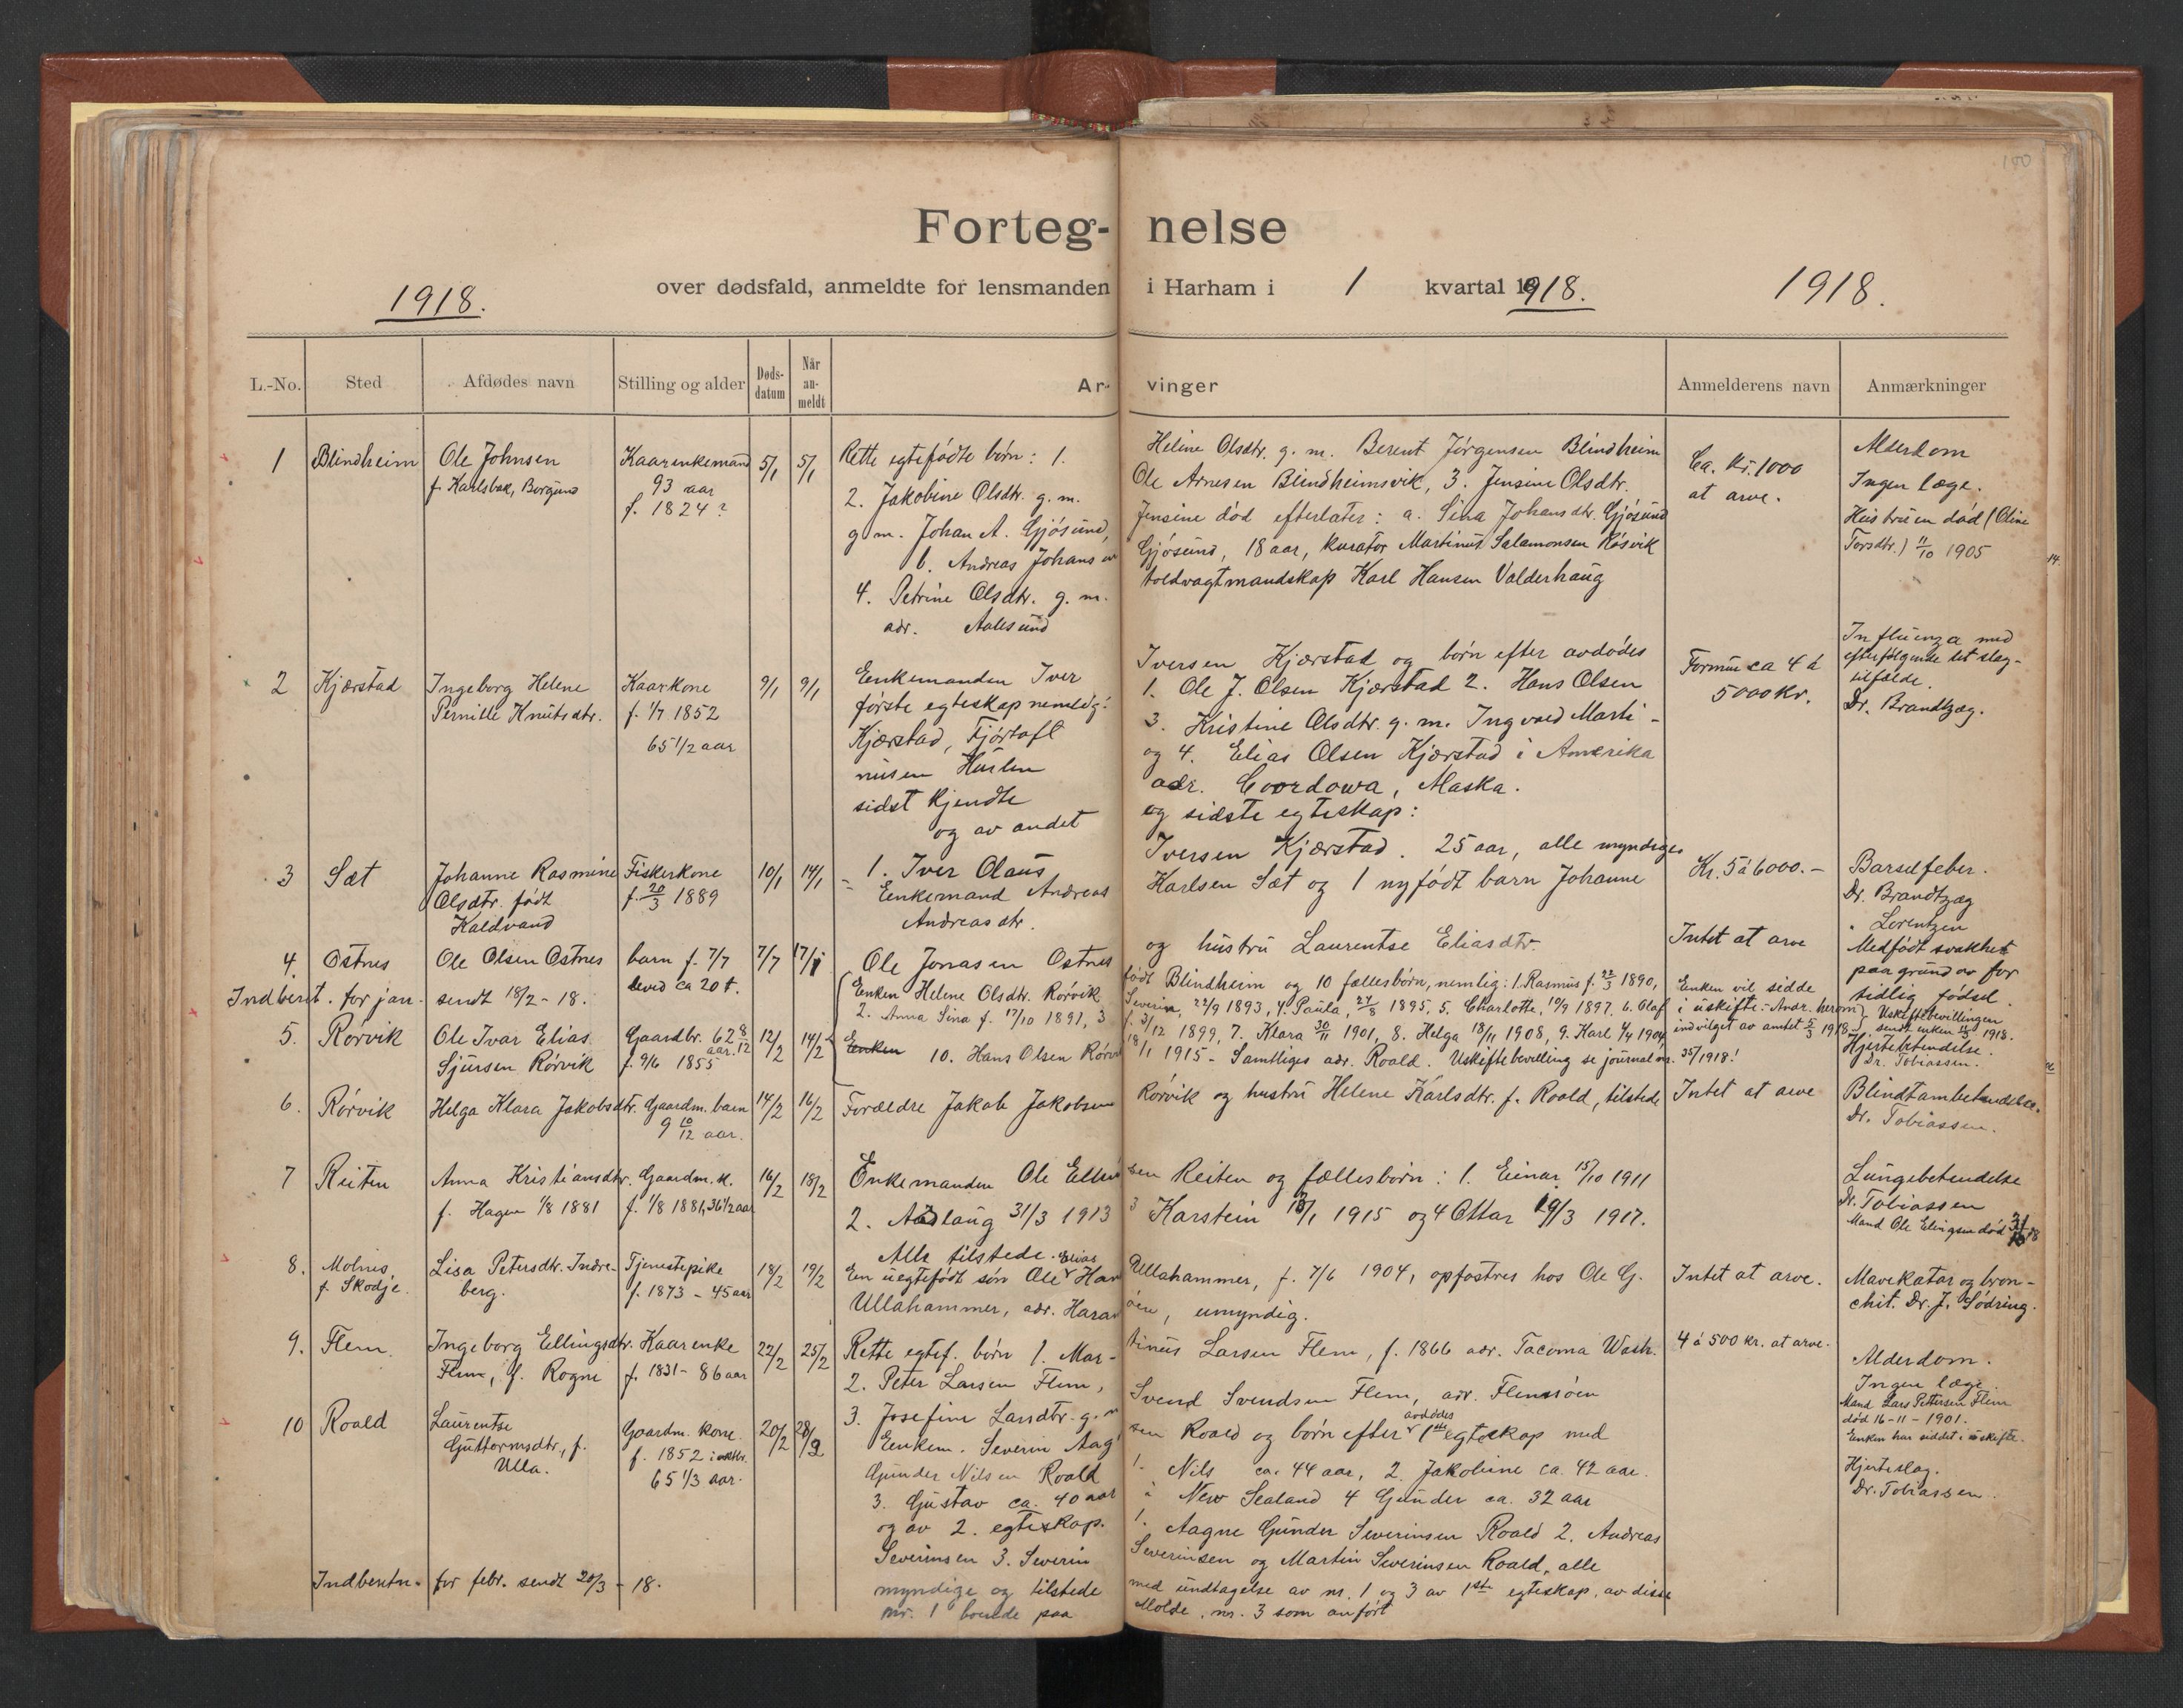 180
Forteg- nelse
1918. over dødsfald, anmeldte for lensmanden i Harham i 1 kvartal 1918. 1918.
L.-No. Sted Afdødes navn Stilling og alder Døds-datum Når an-meldt Ar- vinger Anmelderens navn Anmærkninger
1 Blindheim Ole Johnsen Kaarenkemand 5/1 5/1 Rette egtefødte børn: 1. Heline Olsdtr. g. m. Berent Jørgensen Blindheim Ca. Kr. 1000 Alderdom
f. Karlsbak, Borgund 93 aar 2. Jakobine Olsdtr. g. m. Ole Arnesen Blindheimsvik, 3. Jensine Olsdtr. at arve. Ingen læge.
f. 1824? g. m. Johan A. Gjøsund, Jensine død efterlater: a. Sina Johansdtr. Gjøsund Hustruen død (Oline
b. Andreas Johans Gjøsund, 18 aar, kurator Martinus Salamonsen Røsvik Torsdtr.) 11/10 1905
4. Petrine Olsdtr. g. m. toldvagtmandskap Karl Hansen Valderhaug
adr. Aalesund
2 Kjærstad Ingeborg Helene Kaarkone 9/1 9/1 Enkemanden Iver Iversen Kjærstad og børn efter avdødes Formue ca 4 á Influenza med
Pernille Knutsdtr. f. 1/7 1852 første egteskap nemlig: 1. Ole J. Olsen Kjærstad 2. Hans Olsen 5000 Kr. efterfølgende let slag-
65 1/2 aar Kjærstad, Fjørtoft 3. Kristine Olsdtr. g. m. Ingvald Marti- tilfælde.
nusen Huslen og 4. Elias Olsen Kjærstad i Amerika Dr. Brandtzæg.
sidst kjendte adr. Coordowa, Alaska.
og av andet og sidste egteskap:
1. Iver Olaus Iversen Kjærstad. 25 aar, alle myndiges
3 Sæt Johanne Rasmine Fiskerkone 10/1 14/1 Enkemand Andreas Karlsen Sæt og 1 nyfødt barn Johanne Kr. 5 á 6000.- Barselfeber.
Olsdtr. født f. 20/3 1889 Andreasdtr. Dr. Brandtzæg
Kaldvand " Lorentzen
4. Østnes Ole Olsen Østnes barn f. 7/7 7/7 17/1 Ole Jonasen Østnes og hustru Laurentse Eliasdtr. Intet at arve Medfødt svakhet
levid ca 20 t. paa grund av for
tidlig fødsel.
Indberet. for jan. sendt 18/2 - 18.
5. Rørvik Ole Ivar Elias Gaardbr. 62 8/12 aar. 12/2 14/2 Enken Helene Olsdtr. Rørvik født Blindheim og 10 fællesbørn, nemlig: 1. Rasmus f. 22/3 1890, Enken vil sidde
Sjursen Rørvik f. 9/6 1855 2. Anna Sina f. 17/10 1891, 3 Severin, 22/9 1893, 4. Paula, 24/8 1895, 5. Charlotte, 10/9 1897. 6. Olaf i uskifte. - Andr. herom Uskiftebevillingen
f. 3/12 1899, 7. Klara 30/11 1901, 8. Helga 18/11 1908, 9. Karl 4/4 1904 indvilget av amtet 5/3 1918. sendt enken 1918.
Enken 10. Hans Olsen Rørvik 18/1 1915 - Samtliges adr. Roald. Uskiftebevilling se journal nr. 35/1918! Hjertebetendelse.
Dr. Tobiassen.
6. Rørvik Helga Klara Jakobsdtr. Gaardm. barn 14/2 16/2 Forældre Jakob Jakobsen Rørvik og hustru Helene Karlsdtr. f. Roald, tilstede Intet at arve Blindtarmbetændelse.
9 10/12 aar. Dr. Tobiassen.
7 Reiten Anna Kristiansdtr. Gaardm. k. 16/2 18/2 Enkemanden Ole Ellingsen Reiten og fællesbørn: 1. Einar 15/10 1911 Lungebetendelse
f. Hagen 1/8 1881 f. 1/8 1881, 36 1/2 aar 2. Aaslaug 31/3 1913 3 Karstein 13/1 1915 og 4 Ottar 19/3 1917. Dr. Tobiassen
Alle tilstede. Mand Ole Elingsen død
8. Molnes, Lisa Petersdtr. Indre- Tjenestepike 18/2 19/2 En uegtefødt søn Ole Elias Han Ullahammer, f. 7/6 1904, opfostres hos Ole G. Intet at arve. Mavekatar og bron-
f. Skodje. berg. f. 1873 - 45 aar Ullahammer, adr. Haram øen, umyndig. chit. Dr. J. Sødring.
9. Flem Ingeborg Ellingsdtr. Kaarenke 22/2 25/2 Rette egtef. børn 1. Mar- tinus Larsen Flem, f. 1866 adr. Tacoma Wash. 4 á 500 kr. at arve. Alderdom.
Flem, f. Rogne f. 1831 - 86 aar 2. Peter Larsen Flem, Ingen læge.
3. Josefine Larsdtr. g. m Svend Svendsen Flem, adr. Flemsøen Mand Lars Pettersen Flem
død 16-11-1901.
Enken har siddet i uskifte.
10 Roald Laurentse Gaardm. kone 20/2 28/2 Enkem. Severin Aag sen Roald og børn efter avdødes 1ste egteskap med Hjerteslag.
Guttormsdtr., f. f. 1852 i oktbr. Gunder Nilsen Roald 1. Nils ca. 44 aar, 2. Jakobine ca. 42 aar. Dr. Tobiassen.
Ulla. 65 1/3 aar. 3. Gustav ca. 40 aar i New Sealand 4 Gunder ca. 32 aar
og av 2. egteskap. 1. Aagne Gunder Severinsen Roald 2. Andreas
Severinsen 3. Severin Severinsen og Martin Severinsen Roald, alle
Indberetn. for febr. sendt 20/3 - 18. myndige og tilstede med undtagelse av nr. 1 og 3 av 1ste egteskap, av disse
nr. 1 boende paa Molde, nr. 3 som anført